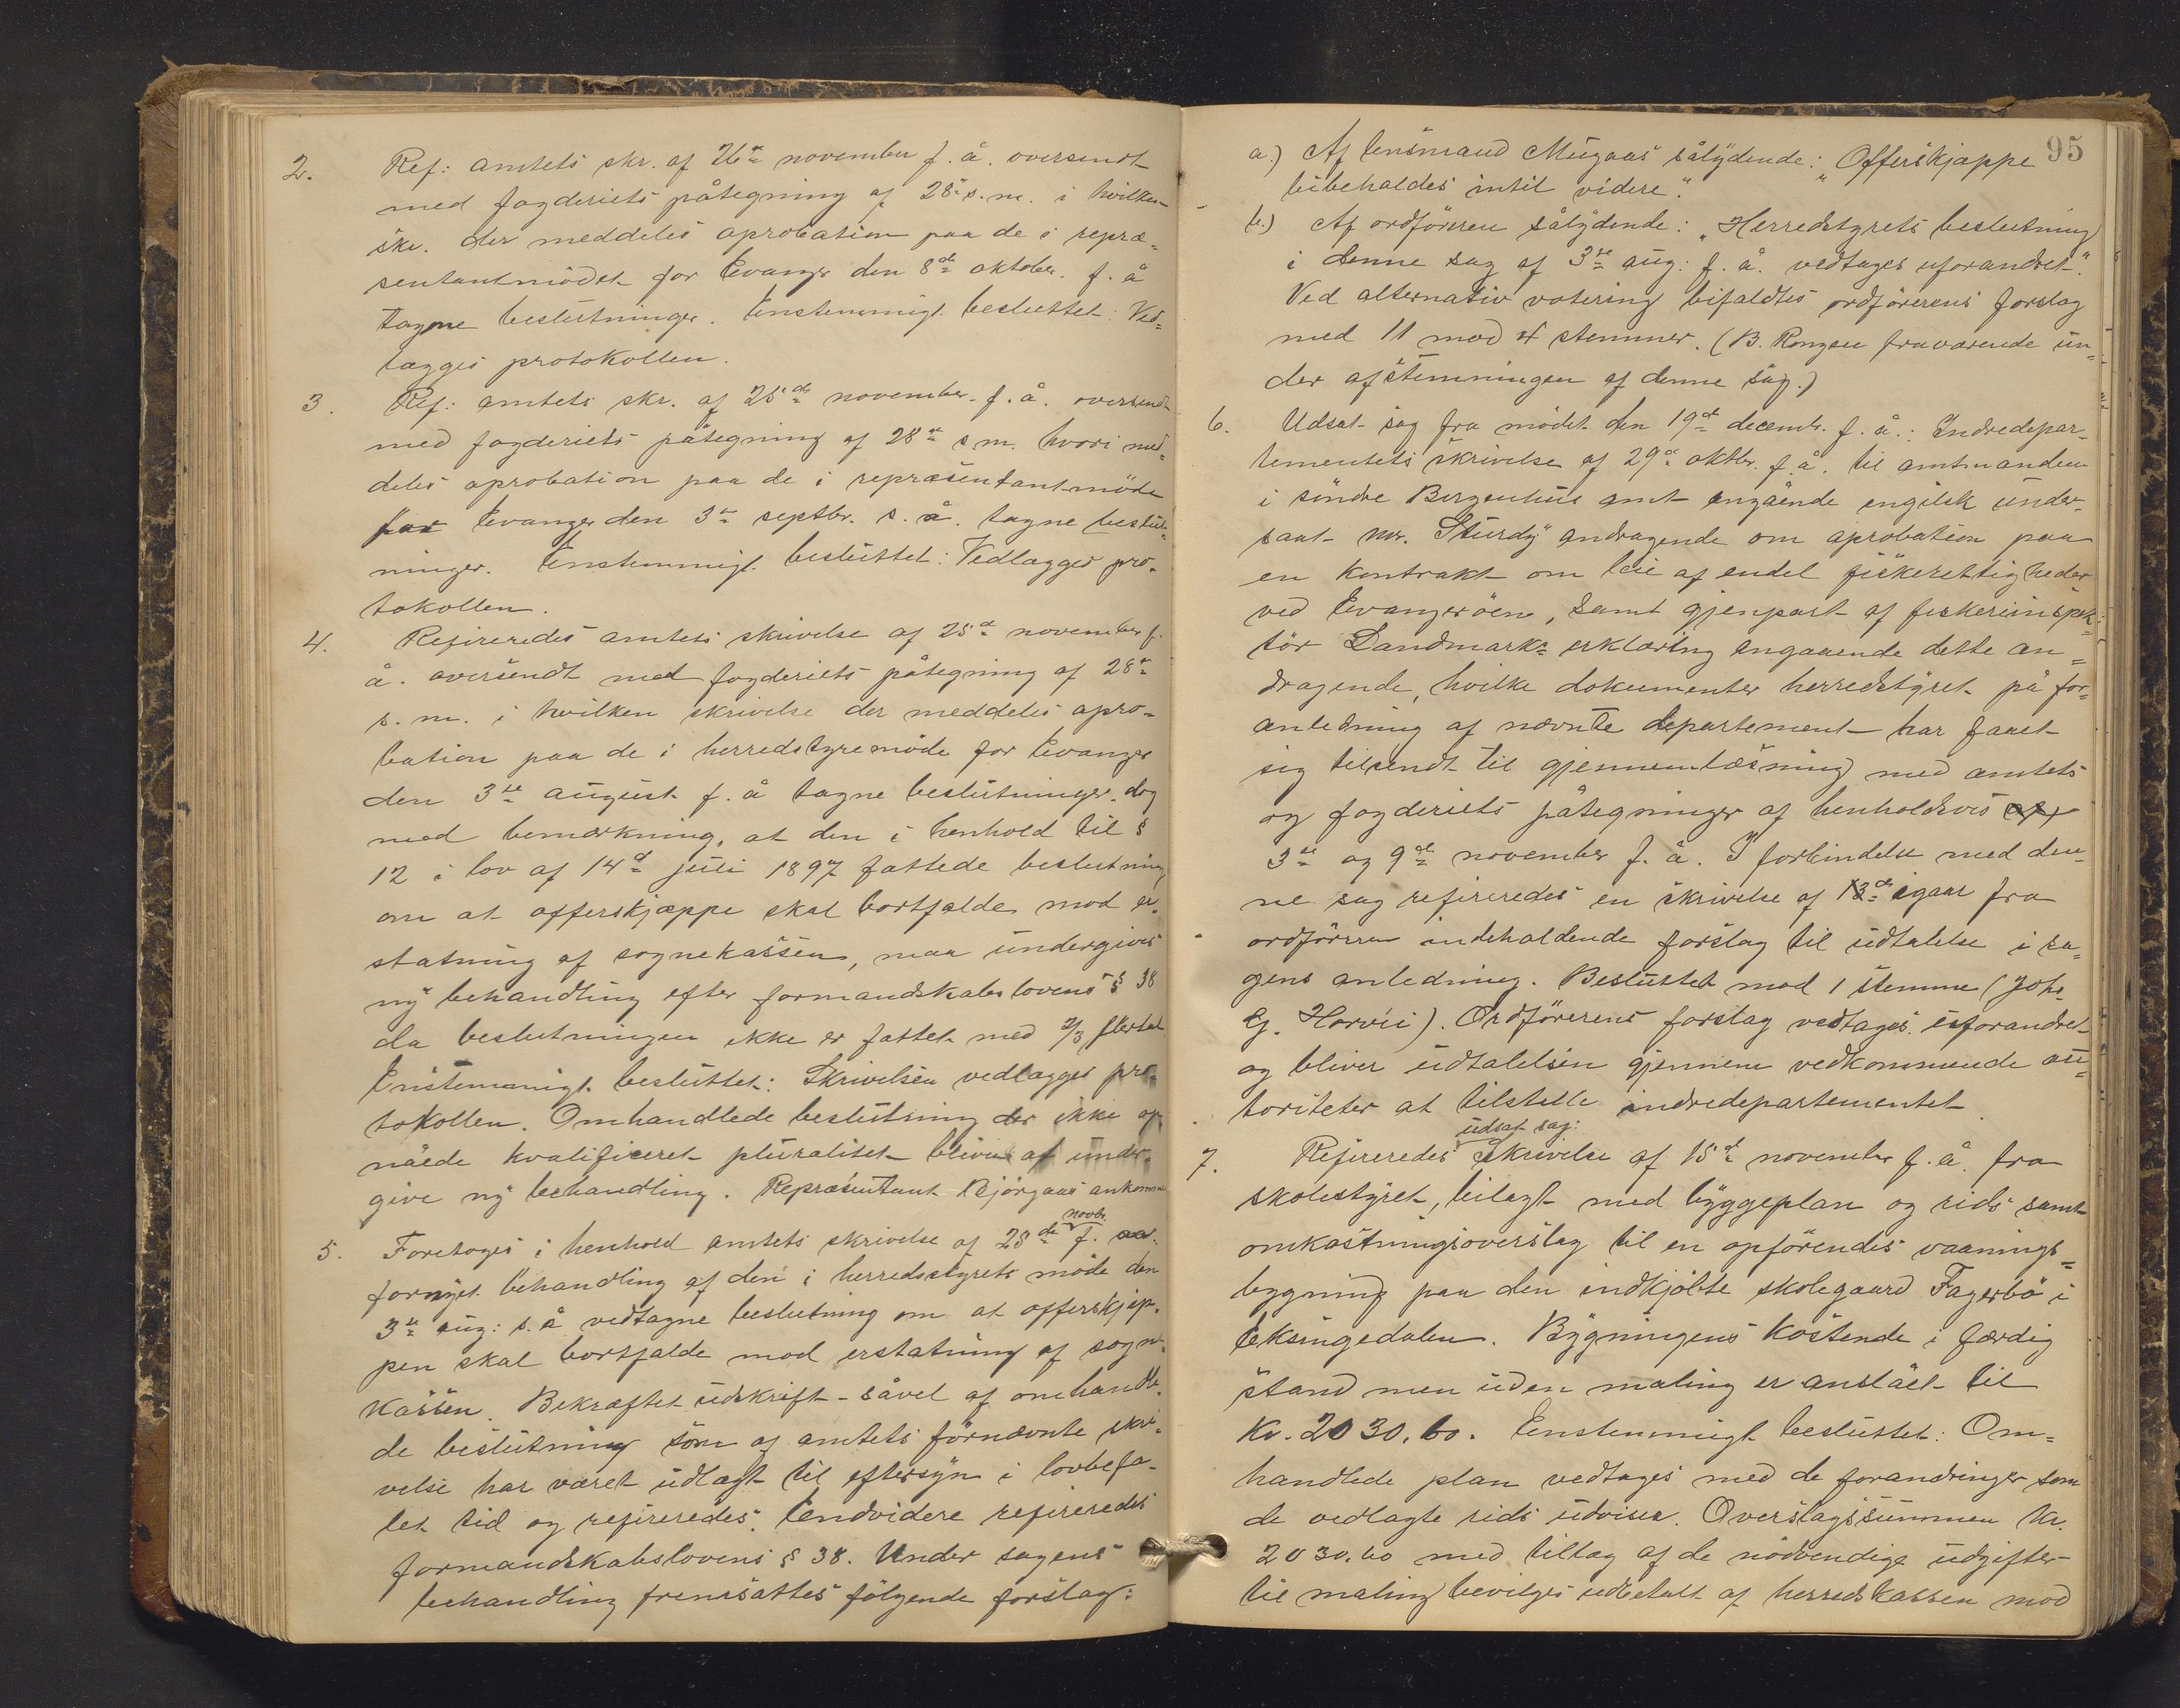 2. Ref: amtets skr. af 26de november f. å. oversendt
med fogderiets påtegning af 28de s. m. i hvilken
skr. der meddeles aprobation paa de i repræ-
sentantmödet for Evanger den 8de oktober f. å
tagne beslutninger. Enstemmigt besluttet: Ved-
lægges protokollen.
3. Ref: amtets skr. af 25de november f. å. oversendt
med fogderiets påtegning af 28de s m. hvori med-
deles aprobation paa de i repræsentantmöde
for Evanger den 3de septbr. s. å. tagne beslut-
ninger. Enstemmigt besluttet: Vedlægges pro-
tokollen.
4. Refireredes amtets skrivelse af 25de november f.
å. oversendt med fogderiets påtegning af 28de
s. m. i hvilken skrivelse der meddeles apro-
bation paa de i herredstyremöde for Evanger
den 3de august f. å tagne beslutninger, dog
med bemærkning, at den i henhold til §
12 i lov af 14de juli 1897 fattede beslutning
om at offerskjæppe skal bortfalde mod er-
statning af sognekassen, maa undergives
ny behandling efter formandskabslovens § 38
da beslutningen ikke er fattet med 2/3 flertal
Enstemmigt besluttet: Skrivelsen vedlægges pro-
tokollen. Omhandlede beslutning der ikke op-
nåede kvalificeret pluralitet bliver at under-
give ny behandling. Repræsentant Bjørgaas ankommet
5. Foretoges i henhold amtets skrivelse af 28de novbr. f. aa.
fornyet behandling af den i herredsstyrets möde den
3de aug: s. å vedtagne beslutning om at offerskjæp-
pen skal bortfalde mod erstatning af sogne-
kassen. Bekræftet udskrift såvel af omhandle-
de beslutning som af amtets förnævnte skri-
velse har været udlagt til eftersyn i lovbefa-
let tid og refireredes. Endvidere refireredes
formandskabslovens § 38. Under sagens
behandling fremsattes følgende forslag:
95
a.) Af lensmand Mugaas sålydende: "Offerskjæppe
bibeholdes intil videre".
b.) Af ordföreren sålydende: "Herredstyrets beslutning
i denne sag af 3de aug: f. å. vedtages uforandret".
Ved alternativ votering bifaldtes ordförerens forslag
med 11 mod 4 stemmer. (B. Rongen fraværende un-
der afstemningen af denne sag.)
6. Udsat sag fra mödet den 19de decembr. f. å.: Indredepar-
tementets skrivelse af 29de oktbr. f. å. til amtmanden
i söndre Bergenhus amt angående engelsk under-
saat mr. Sturdy andragende om aprobation paa
en kontrakt om leie af endel fiskerettigheder
ved Evangeröen, samt gjenpart af fiskeriinspek-
tör Landmarks erklæring angaaende dette an-
dragende, hvilke dokumenter herredstyret på for-
anledning af nævnte departement har faaet
sig tilsendt til gjennemlæsning med amtets
og fogderiets påtegninger af henholdsvis
3de og 9de november f. å. I forbindelse med den-
ne sag refireredes en skrivelse af 13de igaar fra
ordföreren indeholdende forslag til udtalelse i sa-
gens anledning. Besluttet mod 1 stemme (Johs
G. Horvei). Ordförerens forslag vedtages uforandret
og bliver udtalelsen gjennem vedkommende au-
toriteter at tilstelle indredepartementet.
7. Refireredes udsat sag: Skrivelse af 15de november f. å. fra
skolestyret, bilagt med byggeplan og rids samt
omkostningsoverslag til en opförendes vaanings-
bygning paa den indkjöbte skolegaard Fagerbö i
Eksingedalen. Bygningens kostende i færdig
stand men uden maling er anslået til
Kr. 2030.60. Enstemmigt besluttet: Om-
handlede plan vedtages med de forandringer som
de vedlagte rids udviser. Overslagssummen kr.
2030.60 med tillæg af de nödvendige udgifter
til maling bevilges udbetalt af herredskassen mod